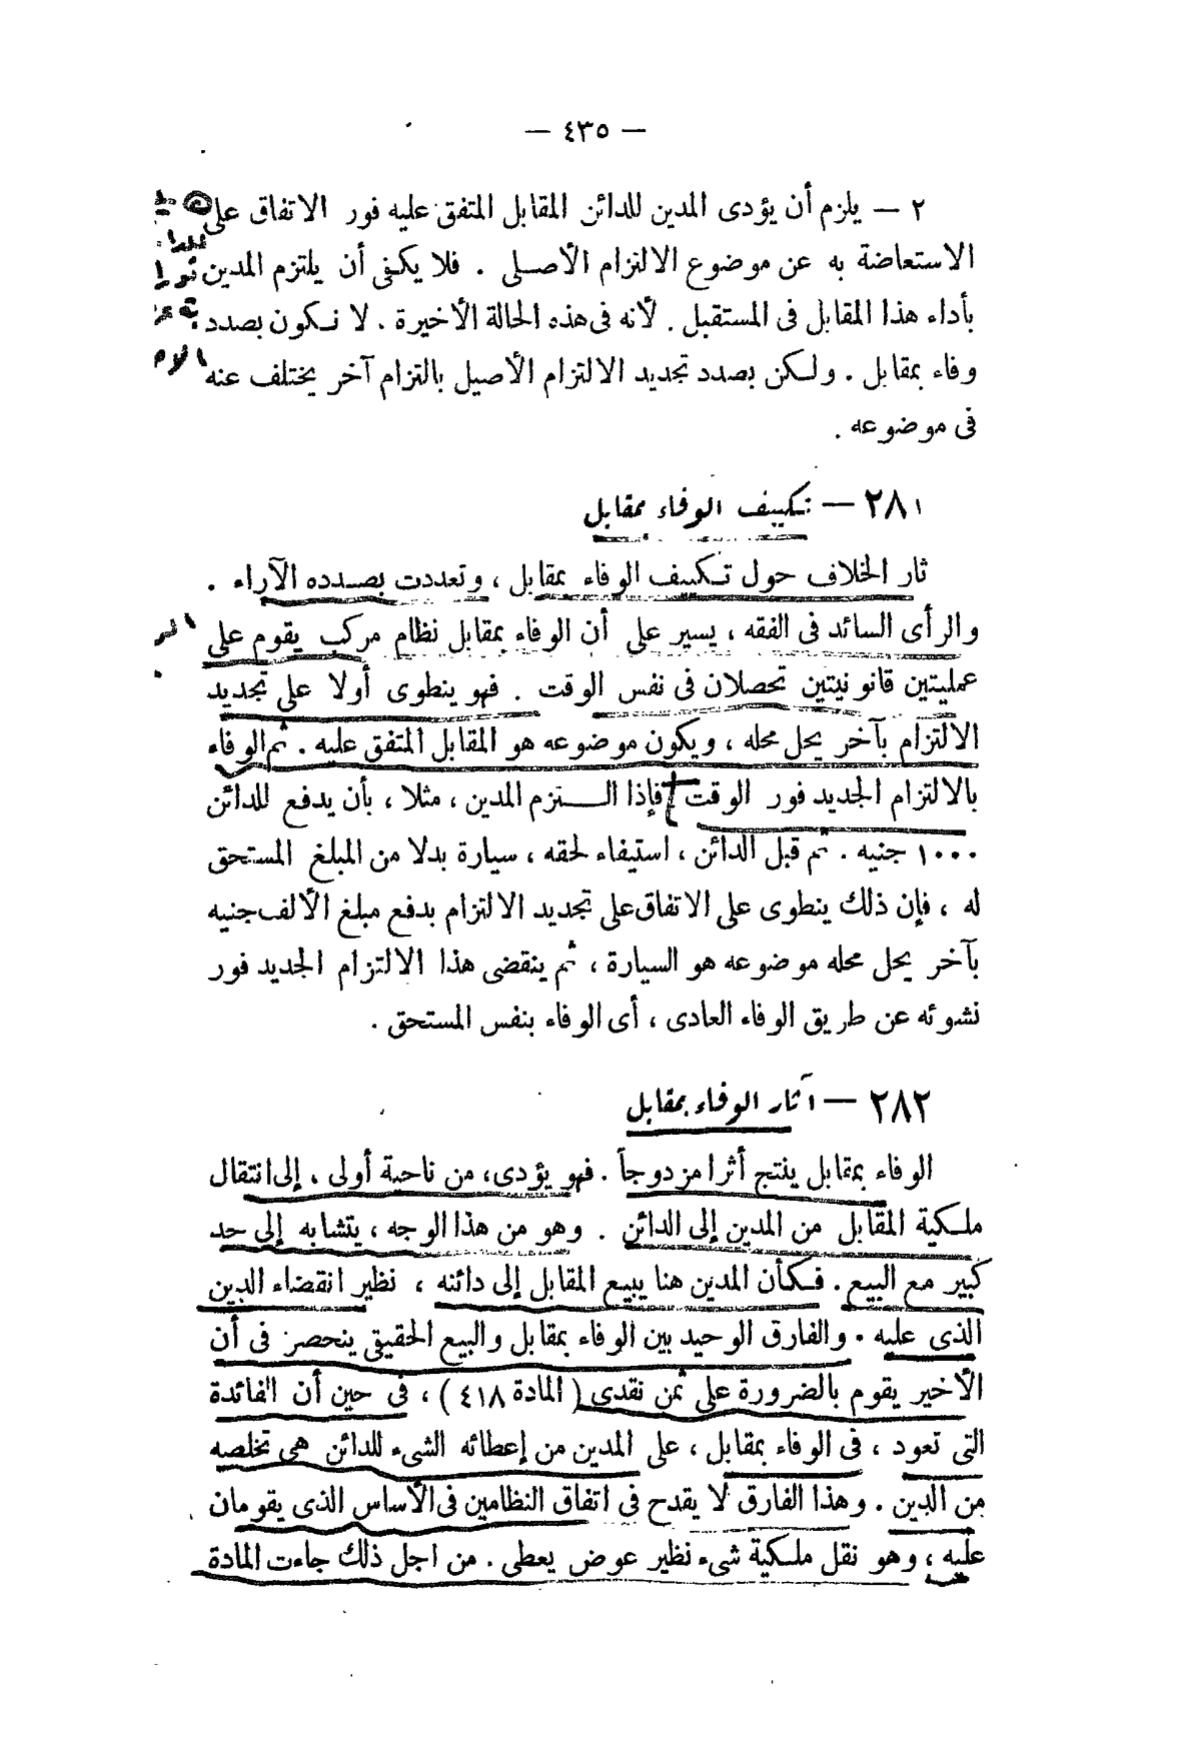 — ٤٣٥ —
٢ — يلزم أن يؤدى المدين للدائن المقابل المتفق عليه فور الاتفاق على
الاستعاضة به عن موضوع الالتزام الأصلى . فلا يكفى أن يلتزم المدين
بأداء هذا المقابل فى المستقبل . لأنه فى هذه الحالة الأخيرة . لا نكون بصدد
وفاء بمقابل . ولكن بصدد تجديد الالتزام الأصيل بالتزام آخر يختلف عنه
فى موضوعه .
٢٨١ — تكييف الوفاء بمقابل
ثار الخلاف حول تكييف الوفاء بمقابل ، وتعددت بصدده الآراء .
والرأى السائد فى الفقه ، يسير على أن الوفاء بمقابل نظام مركب يقوم على
عمليتين قانونيتين تحصلان فى نفس الوقت . فهو ينطوى أولا على تجديد
الالتزام بآخر يحل محله ، ويكون موضوعه هو المقابل المتفق عليه . ثم الوفاء
بالالتزام الجديد فور الوقت فإذا التزم المدين ، مثلا ، بأن يدفع للدائن
١٠٠٠ جنيه . ثم قبل الدائن ، استيفاء لحقه ، سيارة بدلا من المبلغ المستحق
له ، فإن ذلك ينطوى على الاتفاق على تجديد الالتزام بدفع مبلغ الألف جنيه
بآخر يحل محله موضوعه هو السيارة ، ثم ينقضى هذا الالتزام الجديد فور
نشوئه عن طريق الوفاء العادى ، أى الوفاء بنفس المستحق .
٢٨٢ — آثار الوفاء بمقابل
الوفاء بمقابل ينتج أثرا مزدوجاً . فهو يؤدى، من ناحية أولى ، إلى انتقال
ملكية المقابل من المدين إلى الدائن . وهو من هذا الوجه ، يتشابه إلى حد
كبير مع البيع . فكأن المدين هنا يبيع المقابل إلى دائنه ، نظير انقضاء الدين
الذى عليه . والفارق الوحيد بين الوفاء بمقابل والبيع الحقيقى ينحصر فى أن
الأخير يقوم بالضرورة على ثمن نقدى ( المادة ٤١٨ ) ، فى حين أن الفائدة
التى تعود ، فى الوفاء بمقابل ، على المدين من إعطائه الشىء للدائن هى تخلصه
من الدين . وهذا الفارق لا يقدح فى اتفاق النظامين فى الأساس الذى يقومان
عليه ، وهو نقل ملكية شىء نظير عوض يعطى . من اجل ذلك جاءت المادة